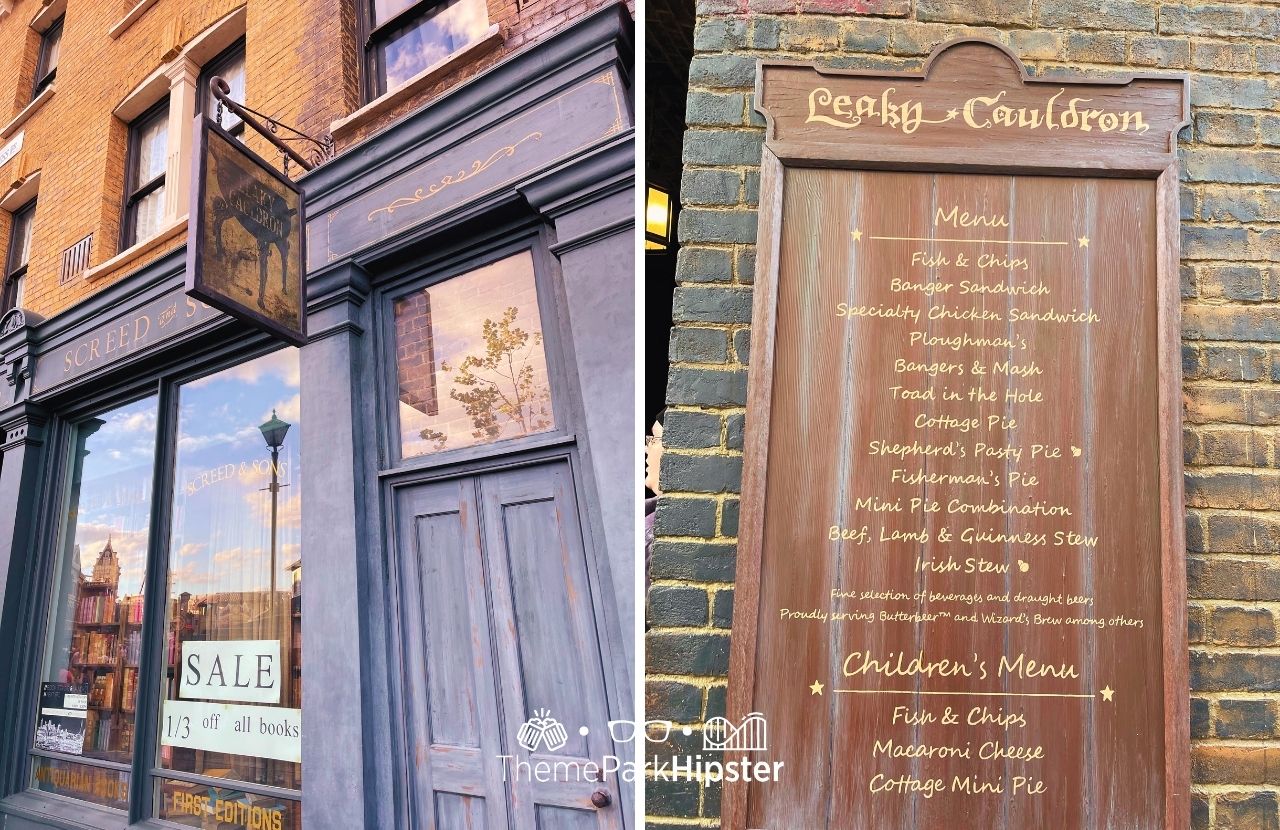 LEAKY
CAULDRON
SCREED and SO
SCREED & SONS
SALE
1/3 off all books
ANTIQUARIAN BOOKS
FIRST EDITIONS
Leaky Cauldron
Menu
Fish & Chips
Banger Sandwich
Specialty Chicken Sandwich
Ploughman's
Bangers & Mash
Toad in the Hole
Cottage Pie
Shepherd's Pasty Pie
Fisherman's Pie
Mini Pie Combination
Beef, Lamb & Guinness Stew
Irish Stew
Fine selection of beverages and draught beers
Proudly serving Butterbeer™ and Wizard's Brew among others
Children's Menu
Fish & Chips
Macaroni Cheese
Cottage Mini Pie
ThemeParkHipster